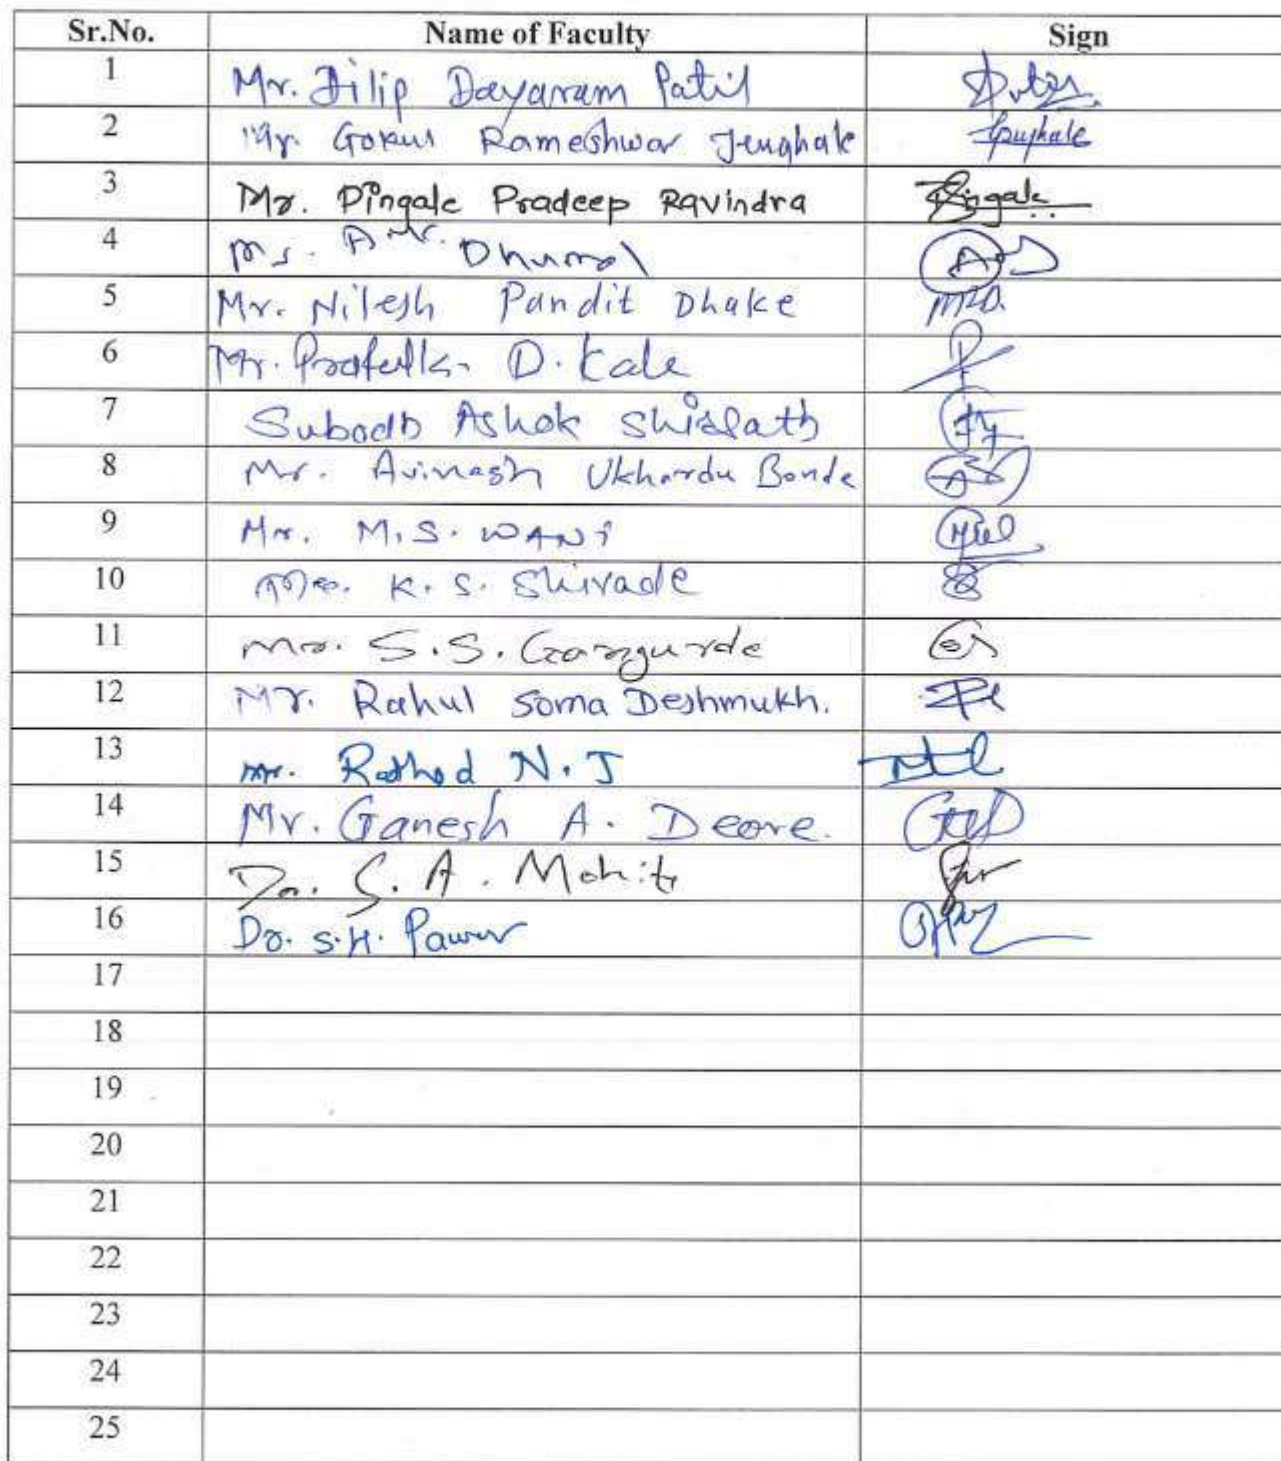 Sr.No. Name of Faculty Sign
1 Mr. Dilip Dayaram Patil
2 Mr. Gokul Rameshwar Jenghale
3 Mr. Pingale Pradeep Ravindra Pingale
4 Ms. Dhumal
5 Mr. Nilesh Pandit Dhake
6 Mr. Prafulla D. Kale
7 Subodh Ashok Shirsath
8 Mr. Avinash Ukhardu Bonde
9 Mr. M.S. WANI
10 K. S. Shivade
11 Mr. S.S. Gangurde
12 Mr. Rahul Soma Deshmukh.
13 Mr. Rathod N.J
14 Mr. Ganesh A. Deore.
15 Dr. S. A. Mohite
16 Dr. S.H. Pawar
17
18
19
20
21
22
23
24
25